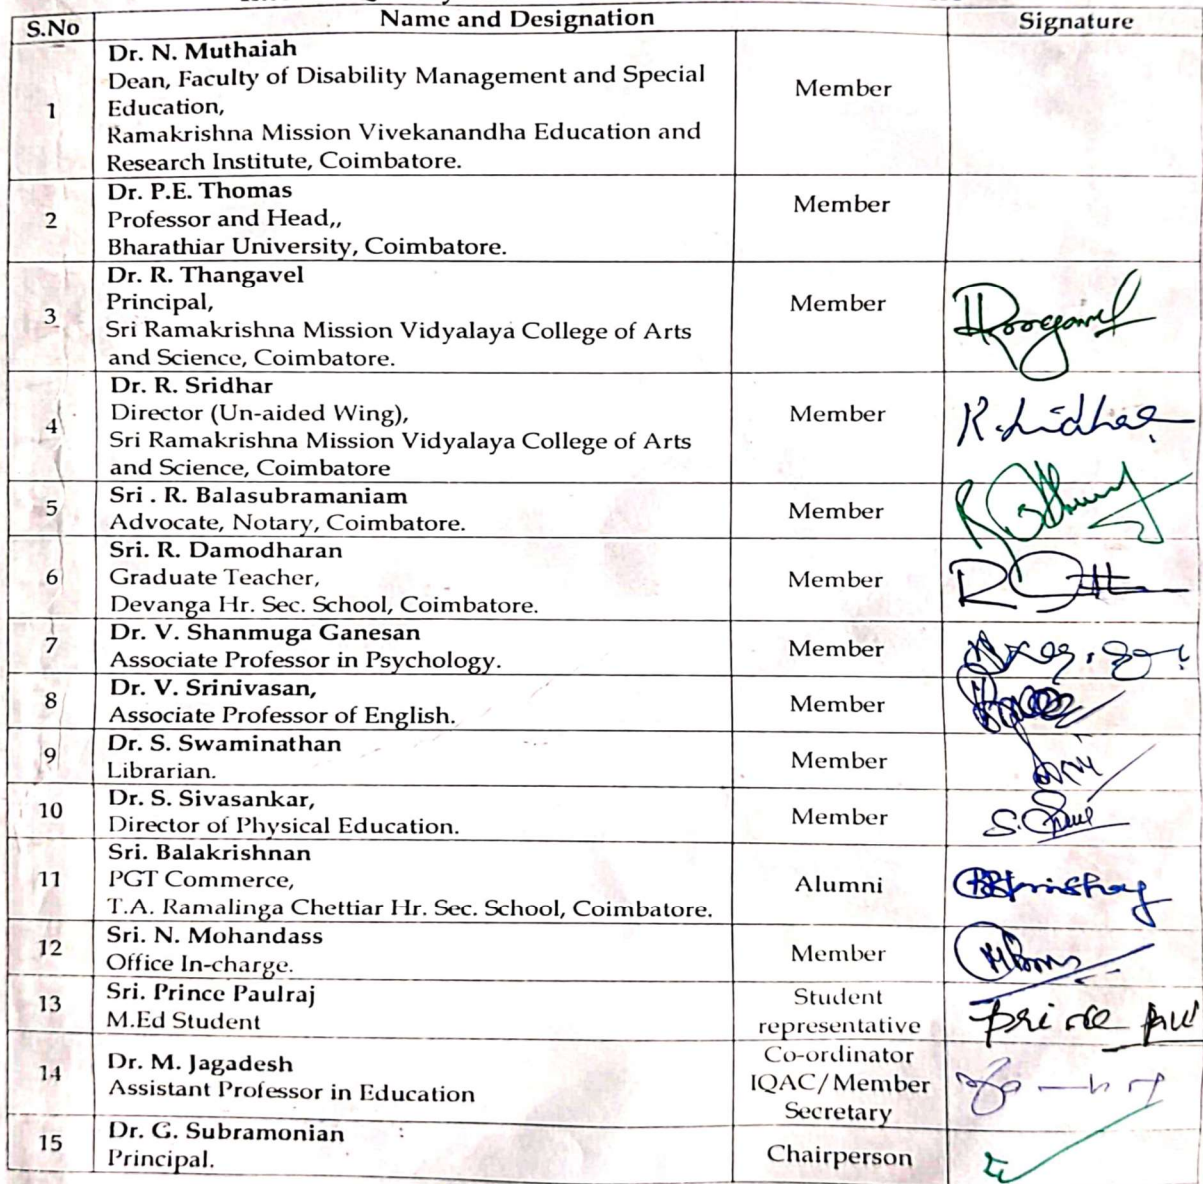 S.No Name and Designation Signature
1 Dr. N. Muthaiah
Dean, Faculty of Disability Management and Special
Education,
Ramakrishna Mission Vivekanandha Education and
Research Institute, Coimbatore.
Member
2 Dr. P.E. Thomas
Professor and Head,,
Bharathiar University, Coimbatore.
Member
3 Dr. R. Thangavel
Principal,
Sri Ramakrishna Mission Vidyalaya College of Arts
and Science, Coimbatore.
Member
4 Dr. R. Sridhar
Director (Un-aided Wing),
Sri Ramakrishna Mission Vidyalaya College of Arts
and Science, Coimbatore
Member
5 Sri . R. Balasubramaniam
Advocate, Notary, Coimbatore.
Member
6 Sri. R. Damodharan
Graduate Teacher,
Devanga Hr. Sec. School, Coimbatore.
Member
7 Dr. V. Shanmuga Ganesan
Associate Professor in Psychology.
Member
8 Dr. V. Srinivasan,
Associate Professor of English.
Member
9 Dr. S. Swaminathan
Librarian.
Member
10 Dr. S. Sivasankar,
Director of Physical Education.
Member
11 Sri. Balakrishnan
PGT Commerce,
T.A. Ramalinga Chettiar Hr. Sec. School, Coimbatore.
Alumni
12 Sri. N. Mohandass
Office In-charge.
Member
13 Sri. Prince Paulraj
M.Ed Student
Student
representative
14 Dr. M. Jagadesh
Assistant Professor in Education
Co-ordinator
IQAC/Member
Secretary
15 Dr. G. Subramonian :
Principal.
Chairperson